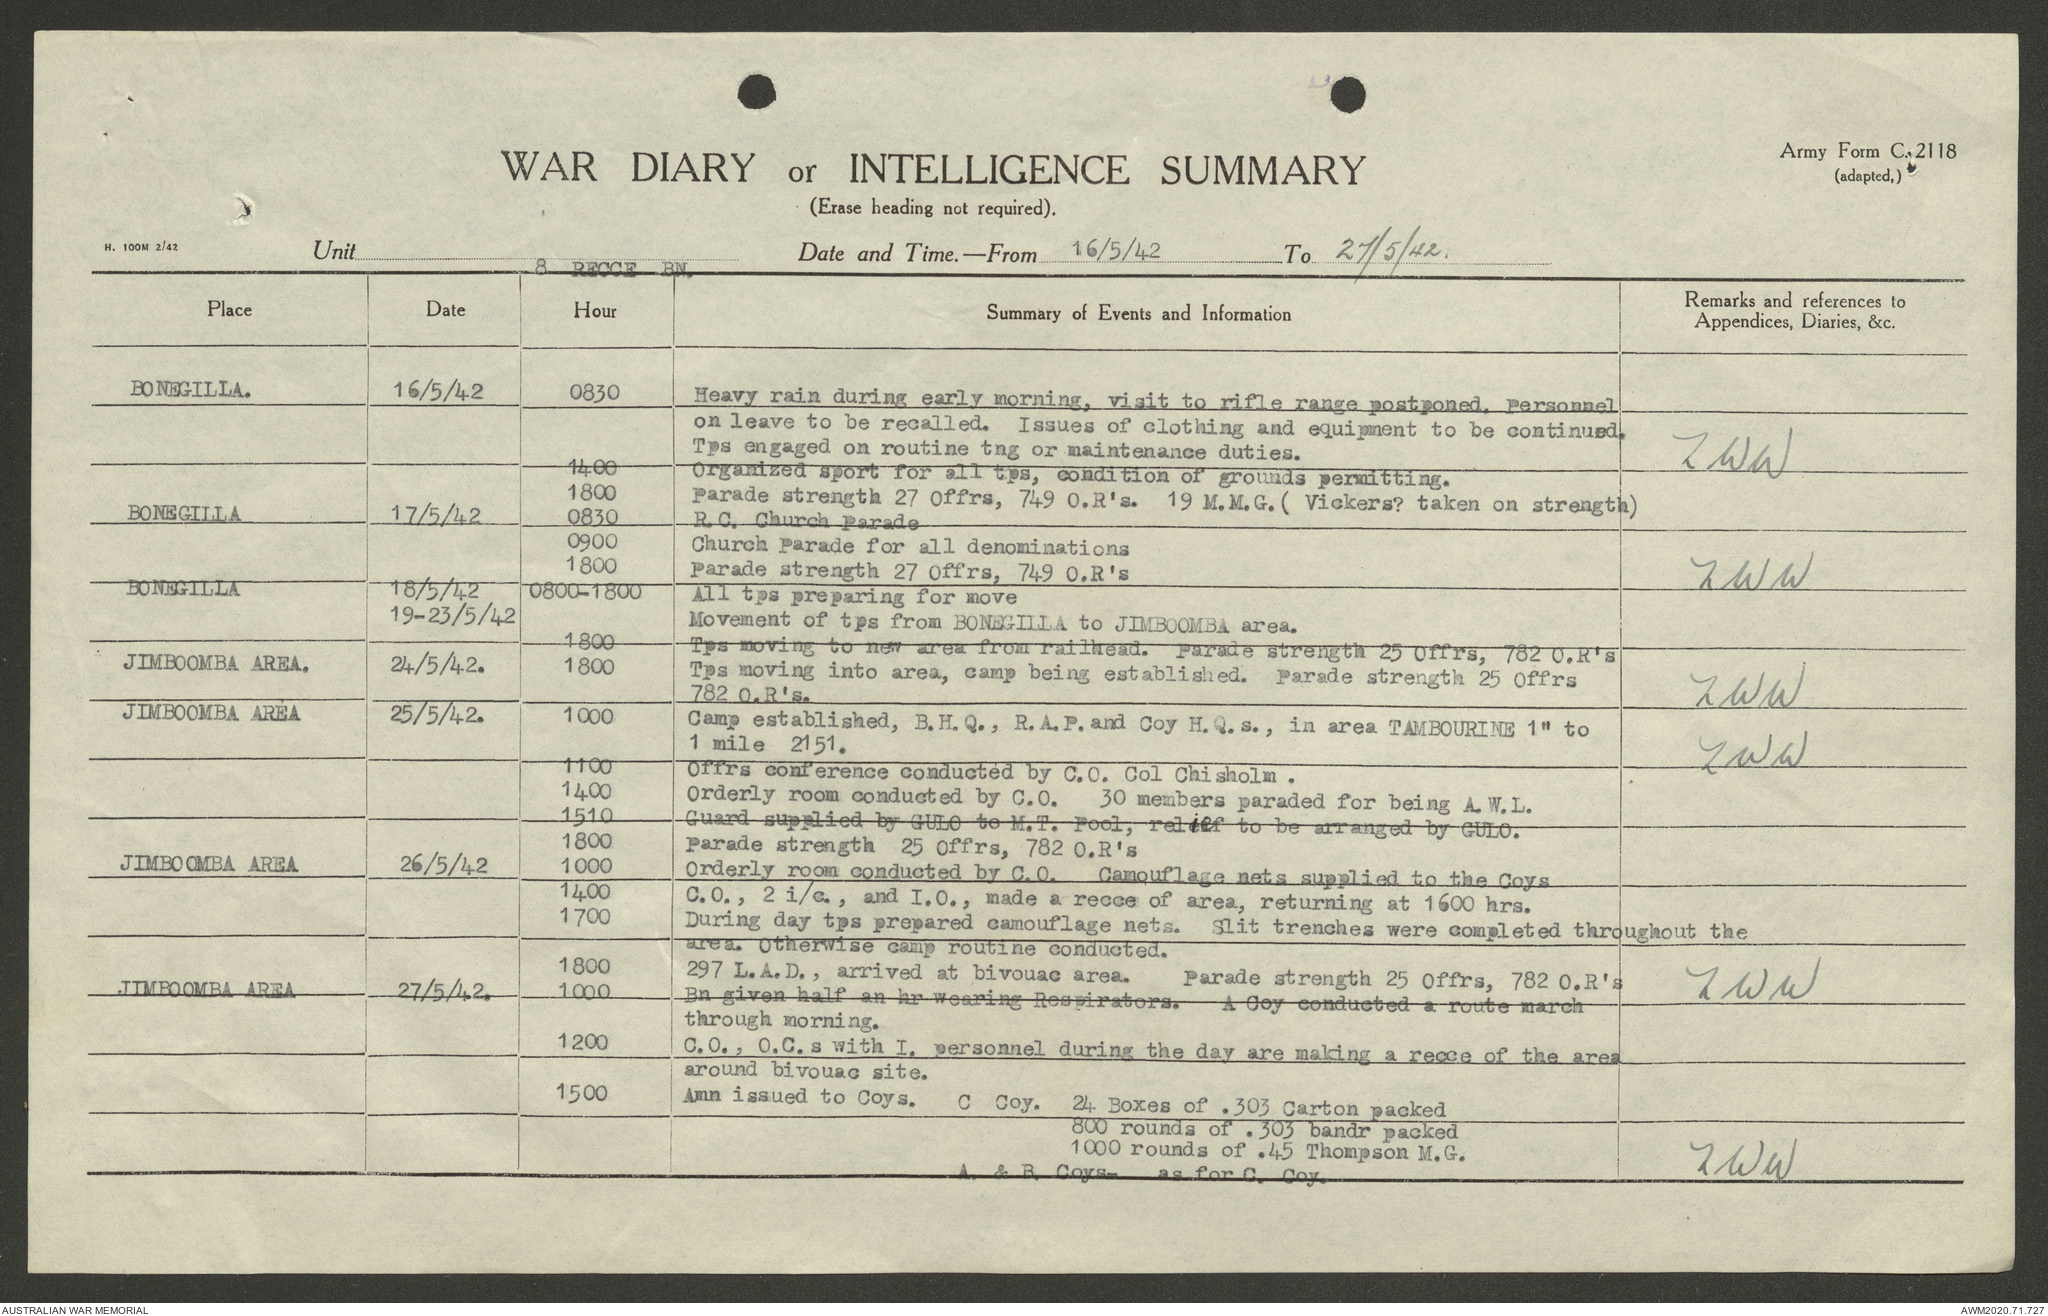 WAR DIARY or INTELLIGENCE SUMMARY
(Erase heading not required).
Army Form C. 2118
(adapted,)
H. 100M 2/42
Unit 8 RECCE BN. Date and Time.—From 16/5/42 To 27/5/42.
Place Date Hour Summary of Events and Information Remarks and references to
Appendices, Diaries, &c.
BONEGILLA. 16/5/42 0830 Heavy rain during early morning, visit to rifle range postponed. Personnel
on leave to be recalled. Issues of clothing and equipment to be continued.
Tps engaged on routine tng or maintenance duties. ZWW
1400 Organized sport for all tps, condition of grounds permitting.
1800 Parade strength 27 Offrs, 749 O.R's. 19 M.M.G.( Vickers? taken on strength)
BONEGILLA 17/5/42 0830 R.C. Church Parade
0900 Church Parade for all denominations
1800 Parade strength 27 Offrs, 749 O.R's ZWW
BONEGILLA 18/5/42 0800-1800 All tps preparing for move
19-23/5/42 Movement of tps from BONEGILLA to JIMBOOMBA area.
1800 Tps moving to new area from railhead. Parade strength 25 Offrs, 782 O.R's
JIMBOOMBA AREA. 24/5/42. 1800 Tps moving into area, camp being established. Parade strength 25 Offrs
782 O.R's. ZWW
JIMBOOMBA AREA 25/5/42. 1000 Camp established, B.H.Q., R.A.P. and Coy H.Q.s., in area TAMBOURINE 1" to
1 mile 2151. ZWW
1100 Offrs conference conducted by C.O. Col Chisholm .
1400 Orderly room conducted by C.O. 30 members paraded for being A.W.L.
1510 Guard supplied by GULO to M.T. Pool, relief to be arranged by GULO.
1800 Parade strength 25 Offrs, 782 O.R's
JIMBOOMBA AREA 26/5/42 1000 Orderly room conducted by C.O. Camouflage nets supplied to the Coys
1400 C.O., 2 i/c., and I.O., made a recce of area, returning at 1600 hrs.
1700 During day tps prepared camouflage nets. Slit trenches were completed throughout the
area. Otherwise camp routine conducted.
1800 297 L.A.D., arrived at bivouac area. Parade strength 25 Offrs, 782 O.R's ZWW
JIMBOOMBA AREA 27/5/42. 1000 Bn given half an hr wearing Respirators. A Coy conducted a route march
through morning.
1200 C.O., O.C.s with I. personnel during the day are making a recce of the area
around bivouac site.
1500 Amn issued to Coys. C Coy. 24 Boxes of .303 Carton packed
800 rounds of .303 bandr packed
1000 rounds of .45 Thompson M.G. ZWW
A. & B. Coys- as for C. Coy.
AUSTRALIAN WAR MEMORIAL
AWM2020.71.727